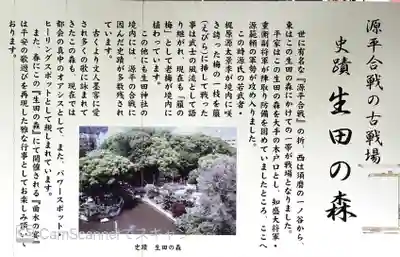 源平合戦の古戦場
史蹟 生田の森
世に有名な『源平合戦』の折、西は須磨の一ノ谷から、
東はこの生田の森にかけての一帯が戦場となりました。
平家はこの生田の森を大手の木戸口とし、知盛大将軍・
重衡副将軍が陣取り防備を固めていましたところ、ここへ
源範頼の軍勢が攻め入りました。
この時源氏の若武者・
梶原源太景季が境内に咲
き誇った梅の一枝を箙
(えびら)に挿して戦った
事は武士の風流として語
り継がれ、現在も「箙の
梅」が所縁の梅が境内に
植わっています。
この他にも生田神社の
境内には、源平の合戦に
因んだ史蹟が多数残され
ています。
古くより文人墨客に愛
され多くの歌に詠まれて
きたこの森も、現在では
都会の真中のオアシスとして、また、パワースポット・
ヒーリングスポットとして親しまれています。
また、春にこの『生田の森』にて開催される『曲水の宴』
は平安の歌遊びを再現した雅な行事としてお楽しみ頂いて
おります。
史蹟 生田の森
CamScannerでスキャン